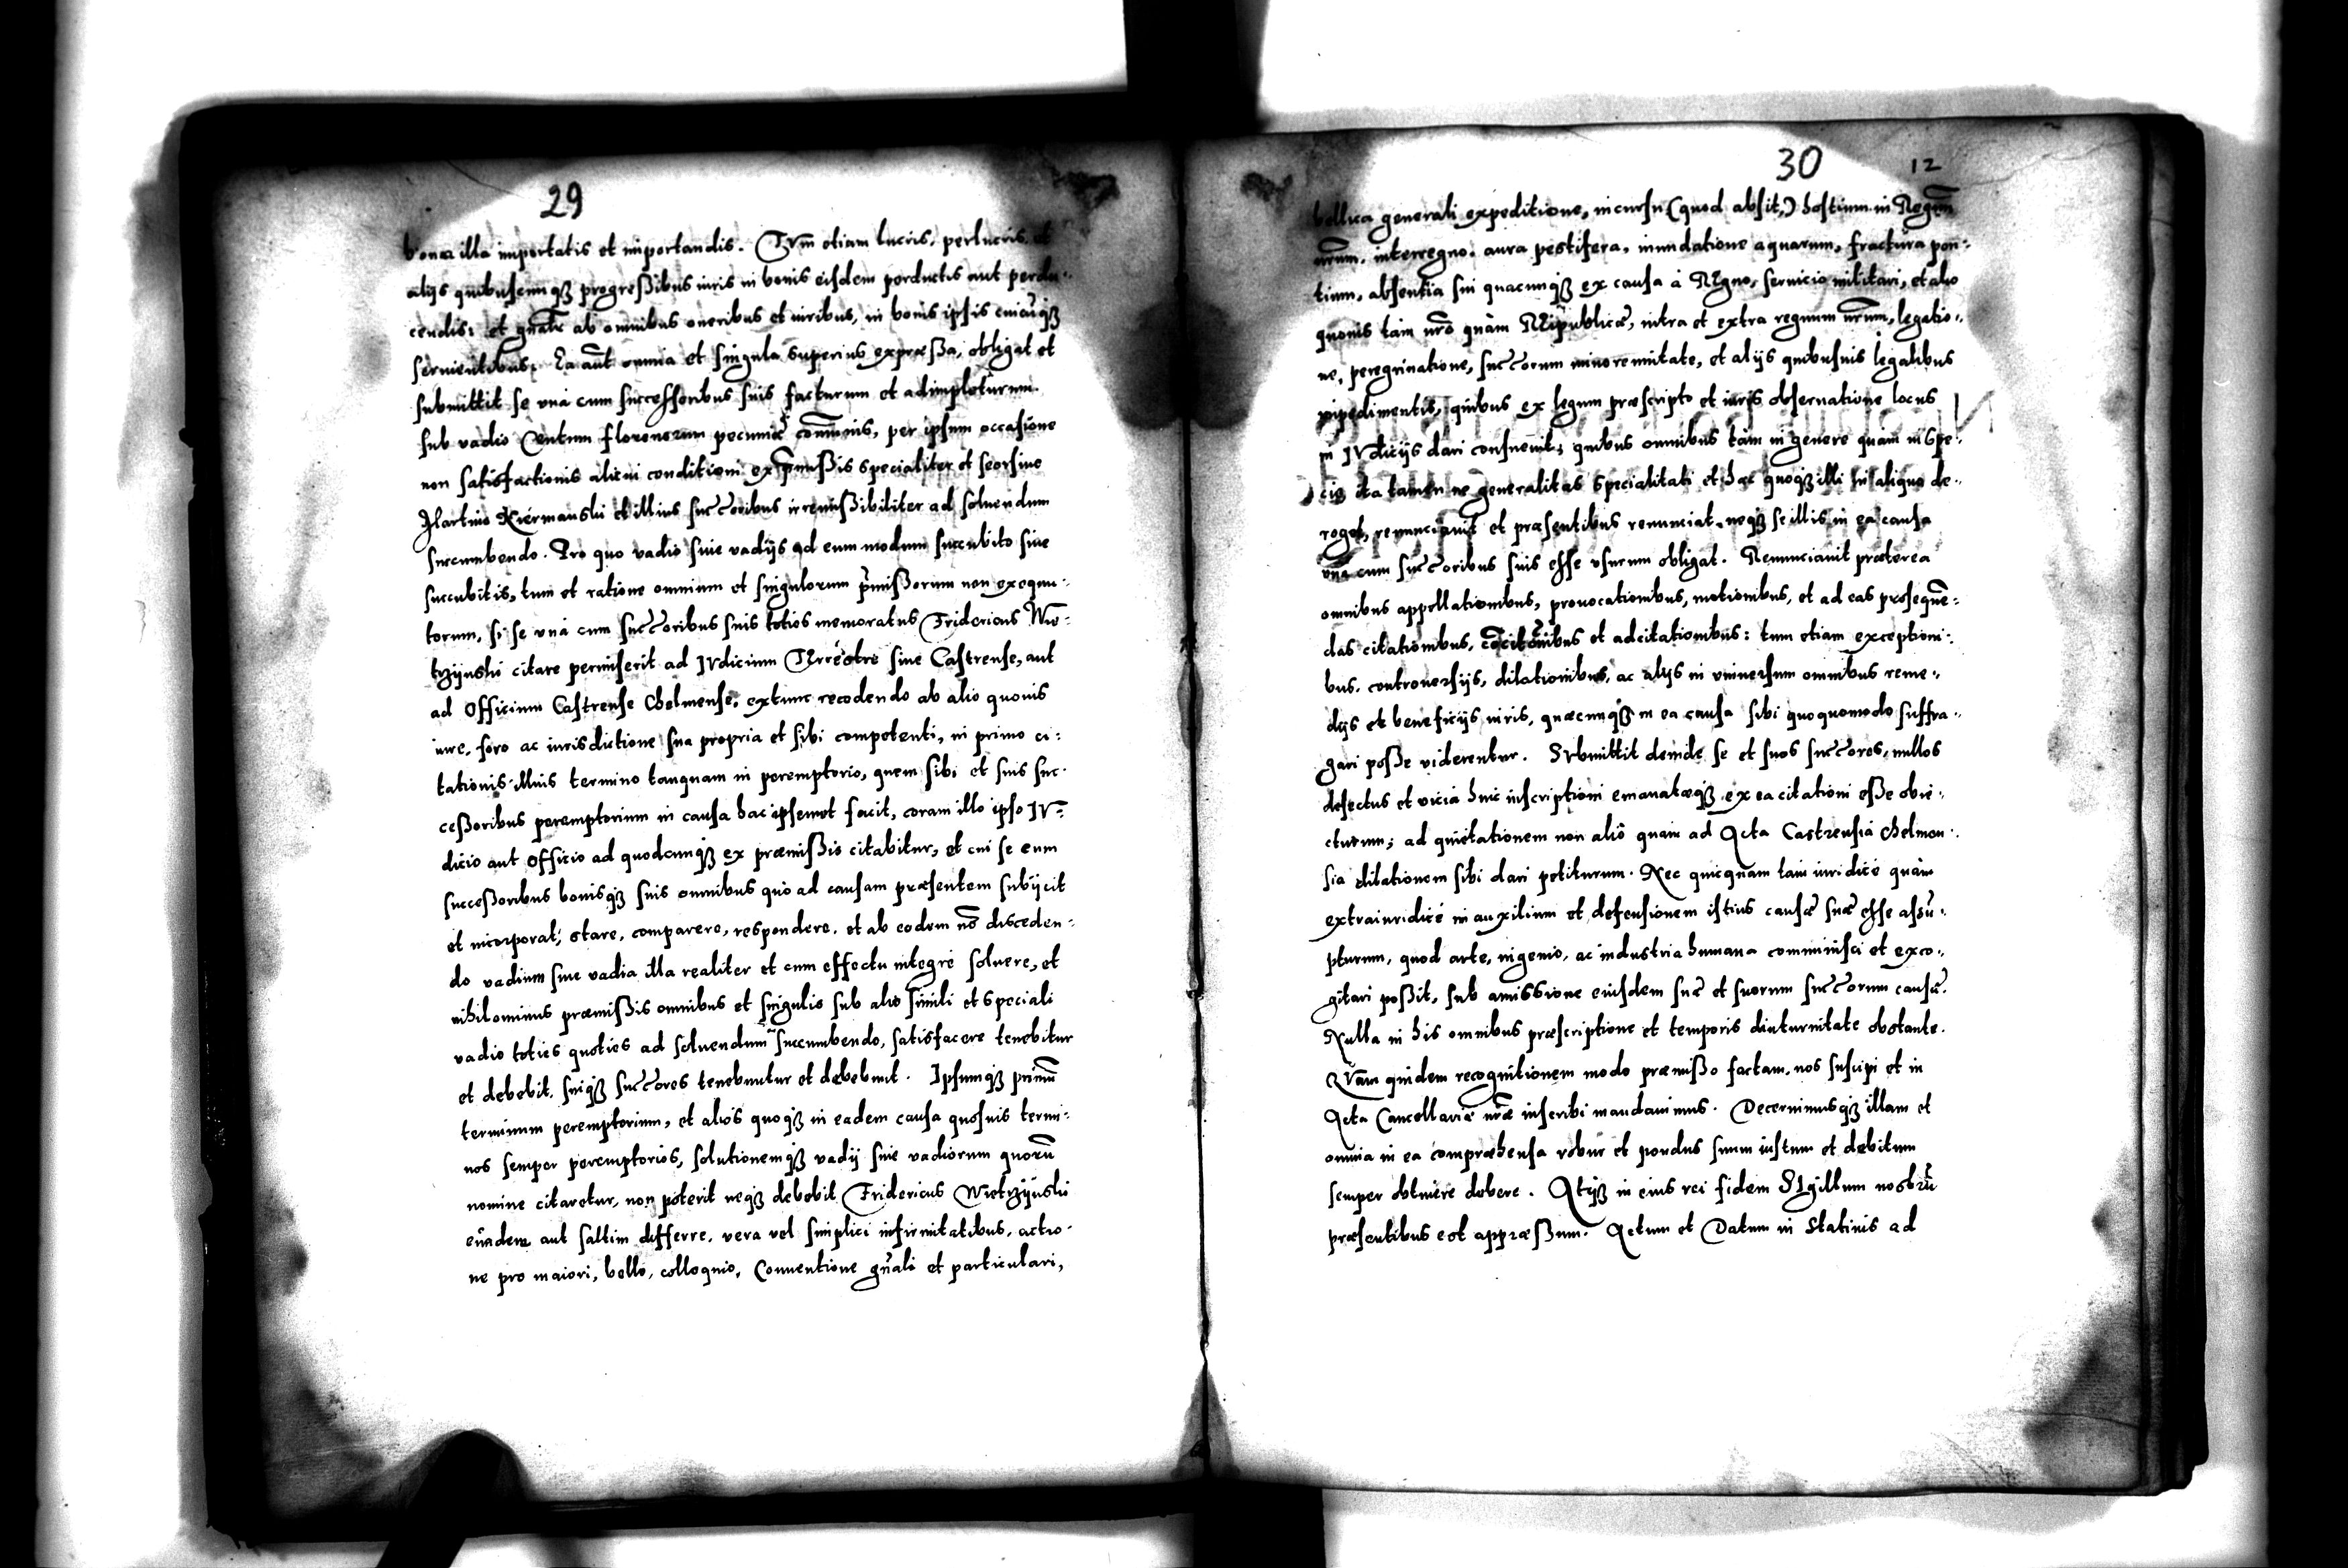 29
bona illa importatis et importandis. Tum etiam lucris, perlucris, et
alijs quibuscunqȝ progreßibus iuris in bonis eisdem perductis aut perdu:
cendis: et gnalr ab omnibus oneribus et iuribus, in bonis ipsis cuicũqȝ
seruientibus. Ea aũt omnia et singula superius expræßa, obligat et
submittit se vnà cum successoribus suis facturum et adimpleturum
sub vadio Centum florenorum pecuniæ cõmunis, per ipsum occasione
non satisfactionis alicui conditioni ex p̃mißis specialiter et seorsiue
Martino Kiermanski et illius succoribus irremißibiliter ad soluendum
succumbendo. Pro quo vadio siue vadijs ad eum modum succubito siue
succubitis, tum et ratione omnium et singulorum p̃mißorum non exequu:
torum, si se vnà cum succoribus suis toties memoratus Fridericus Wie:
trzijnski citare permiserit ad IVdicium TErrestre siue Castrense, aut
ad Officium Castrense Chelmense, extunc recedendo ab alio quouis
iure, foro ac iurisdictione sua propria et sibi competenti, in primo ci:
tationis illius termino tanquam in peremptorio, quem sibi et suis suc:
ceßoribus peremptorium in causa hac ipsemet facit, coram illo ipso IV:
dicio aut Officio ad quodcunqȝ ex præmißis citabitur, et cui se cum
succeßoribus bonisqȝ suis omnibus quò ad causam præsentem subijcit
et incorporat, stare, comparere, respondere, et ab eodem nõ disceden:
do vadium siue vadia illa realiter et cum effectu integrè soluere, et
nihilominus præmißis omnibus et singulis sub alio simili et speciali
vadio toties quoties ad soluendum succumbendo, satisfacere tenebitur
et debebit, suiqȝ succores tenebuntur et debebunt. Ipsumqȝ primũ
terminum peremptorium, et alios quoqȝ in eadem causa quosuis termi:
nos semper peremptorios, solutionemqȝ vadij siue vadiorum quorũ
nomine citaretur, non poterit neqȝ debebit Fridericus Wietrzijnski
euadere aut saltim differre, vera vel simplici infirmitatibus, actio:
ne pro maiori, bello, colloquio, Conuentione gñali et particulari,
30
12
bellica generali expeditione, incursu (quod absit,) hostium in Regnũ
nrum, interregno, aura pestifera, inundatione aquarum, fractura pon:
tium, absentia sui quacunqȝ ex causa à REgno, seruicio militari, et alio
quouis tam nrõ quàm REipublicæ, intra et extra regnum nrum, legatio:
ne, peregrinatione, succorum minorennitate, et alijs quibusuis legalibus
impedimentis, quibus ex legum præscripto et iuris obseruatione locus
in IVdicijs dari consueuit; quibus omnibus tàm in genere quàm in spe:
cie ita tamen ne generalitas specialitati et hæc quoqȝ illi in aliquo de:
roget, renunciauit et præsentibus renunciat, neqȝ se illis in ea causa
vnà cum succoribus suis esse vsurum obligat. Renunciauit præterea
omnibus appellationibus, prouocationibus, motionibus, et ad eas proseque:
das citationibus, cõcitõnibus et adcitationibus: tum etiam exceptioni:
bus, controuersijs, dilationibus, ac alijs in vniuersum omnibus reme:
dijs et beneficijs iuris, quæcunqȝ in ea causa sibi quoquomodo suffra:
gari poße viderentur. SVbmittit deinde se et suos succores, nullos
defectus et vicia huic inscriptioni emanatæqȝ ex ea citationi eße obie:
cturum; ad quietationem non aliò quàm ad Acta Castrensia Chelmen:
sia dilationem sibi dari petiturum. Nec quicquam tàm iuridicè quàm
extraiuridicè in auxilium et defensionem istius causæ suæ esse assũ:
pturum, quod arte, ingenio, ac industria humana comminisci et exco:
gitari poßit, sub amissione eiusdem suæ et suorum succorum causæ.
Nulla in his omnibus præscriptione et temporis diuturnitate obstante.
QVam quidem recognitionem modo præmißo factam, nos suscipi et in
Acta Cancellariæ nræ inscribi mandauimus. Decernimusqȝ illam et
omnia in ea compræhensa robur et pondus suum iustum et debitum
semper obtinere debere. Atqȝ in eius rei fidem SIgillum nostrũ
præsentibus est appræßum. Actum et Datum in Statiuis ad